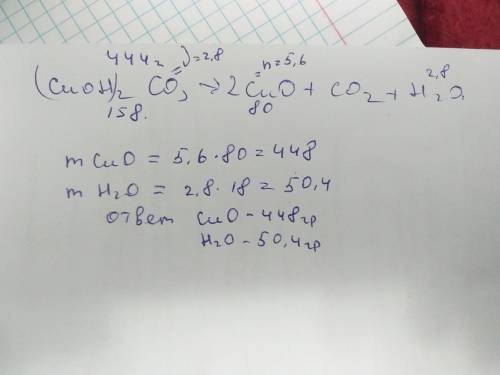 444г ν=2,8 n=5,6 2,8
(CuOH)2 CO3 → 2CuO + CO2 + H2O
158. 80
m CuO = 5,6 · 80 = 448
m H2O = 2,8 · 18 = 50,4
ответ CuO - 448гр
H2O - 50,4гр